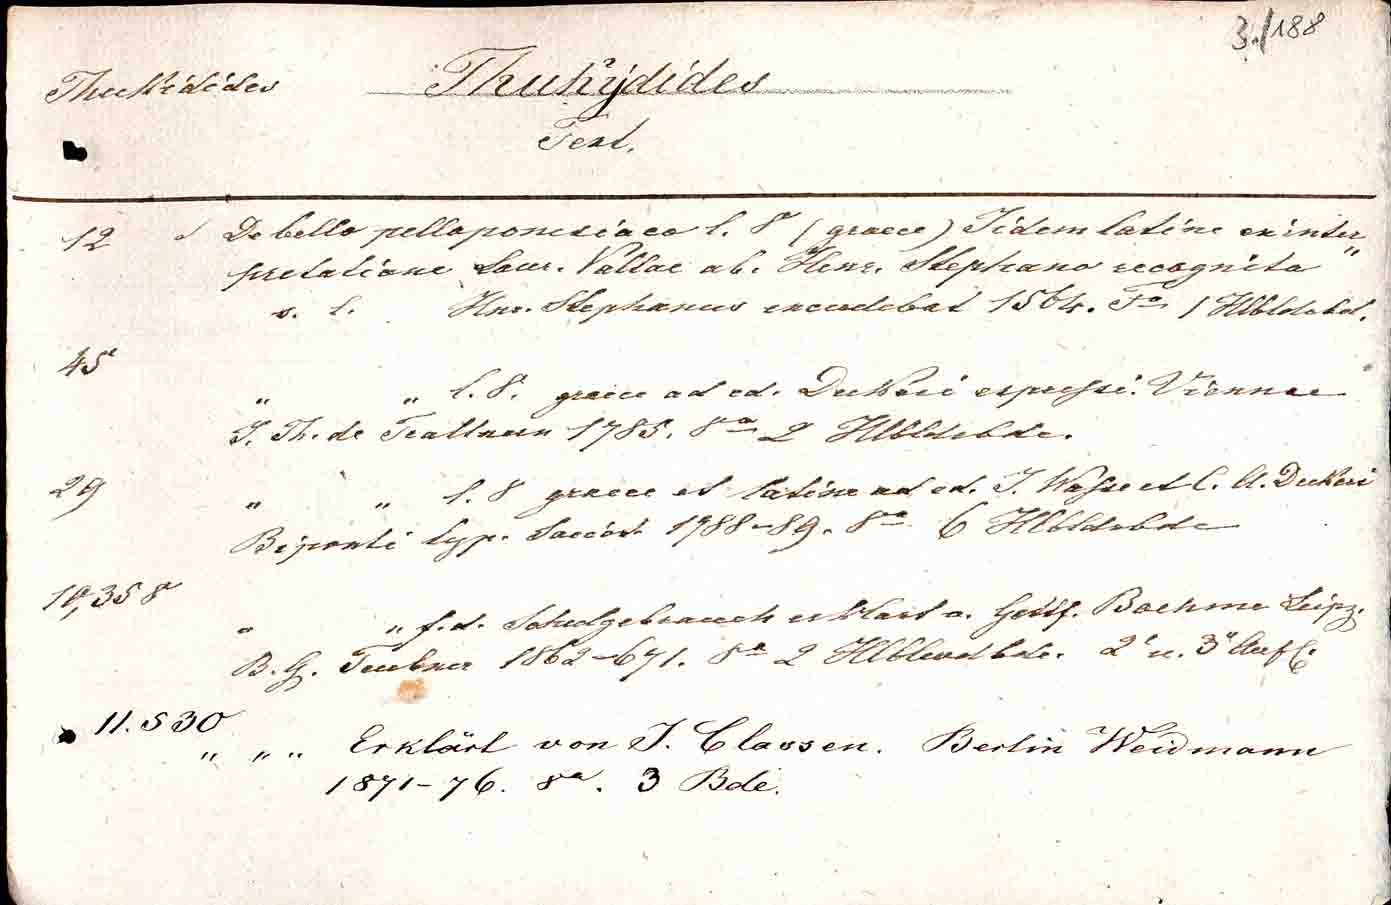 3./188
Thukidides Thukÿdides
Text.
12 De bello pelloponesiaco l. 8 (graece) Iidem latine ex inter"
pretatione Laur. Vallae ab. Henr. Stephano recognita
s. l. Hnr. Stephanus excudebat 1564. Fo 1 Hlbldrbd.
45
" " l. 8. graece ad ed. Dukeri expressi. Viennae
I. Th. de Trattnern 1785. 8o 2 Hlbldrbde.
29 " " l. 8 graece et latine ad ed. I. Wasse et C. A. Dukeri
Biponti typ. Societ. 1788-89. 8o 6 Hlbldrbde
10,358
" " f. d. Schulgebrauch erklärt v. Gottf. Boehme Leipz.
B. G. Teubner 1862-671. 8o 2 Hlblwdbde. 2e u. 3e Aufl.
11.530
" " " Erklärt von J. Classen. Berlin Weidmann
1871-76. 8o. 3 Bde.